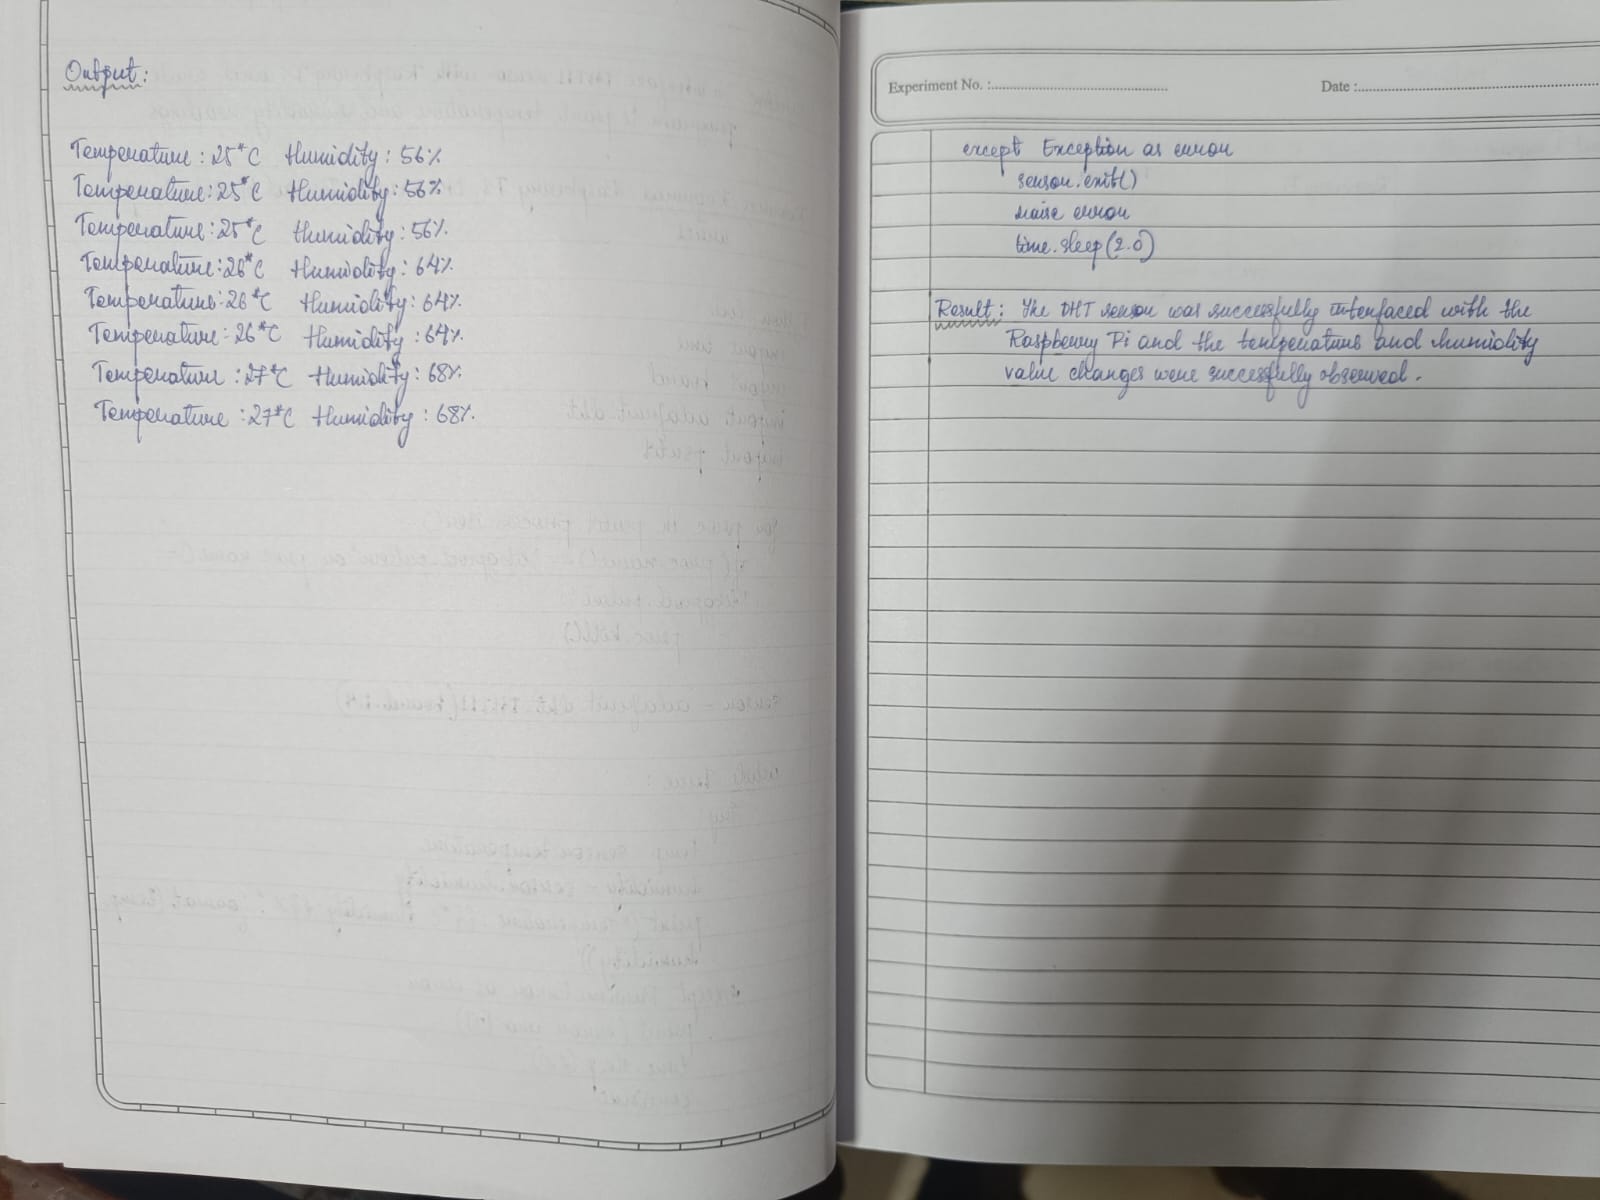 Output:
Temperature : 25°C Humidity : 56%
Temperature : 25°C Humidity : 56%
Temperature : 25°C Humidity : 56%
Temperature : 26°C Humidity : 64%
Temperature : 26°C Humidity : 64%
Temperature : 26°C Humidity : 64%
Temperature : 27°C Humidity : 68%
Temperature : 27°C Humidity : 68%
Experiment No. : Date :
except Exception as error
sensor.exit()
raise error
time.sleep(2.0)
Result : The DHT sensor was successfully interfaced with the
Raspberry Pi and the temperature and humidity
value changes were successfully observed.